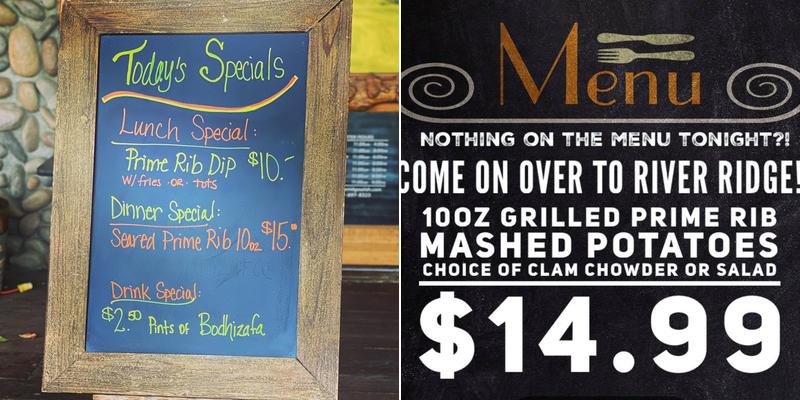 Today's Specials
Lunch Special:
Prime Rib Dip $10.-
w/fries -OR- tots
Dinner Special:
Seared Prime Rib 10oz $15.00
Drink Special:
$2.50 Pints of Bodhizafa
Menu
NOTHING ON THE MENU TONIGHT?!
COME ON OVER TO RIVER RIDGE!
10OZ GRILLED PRIME RIB
MASHED POTATOES
CHOICE OF CLAM CHOWDER OR SALAD
$14.99